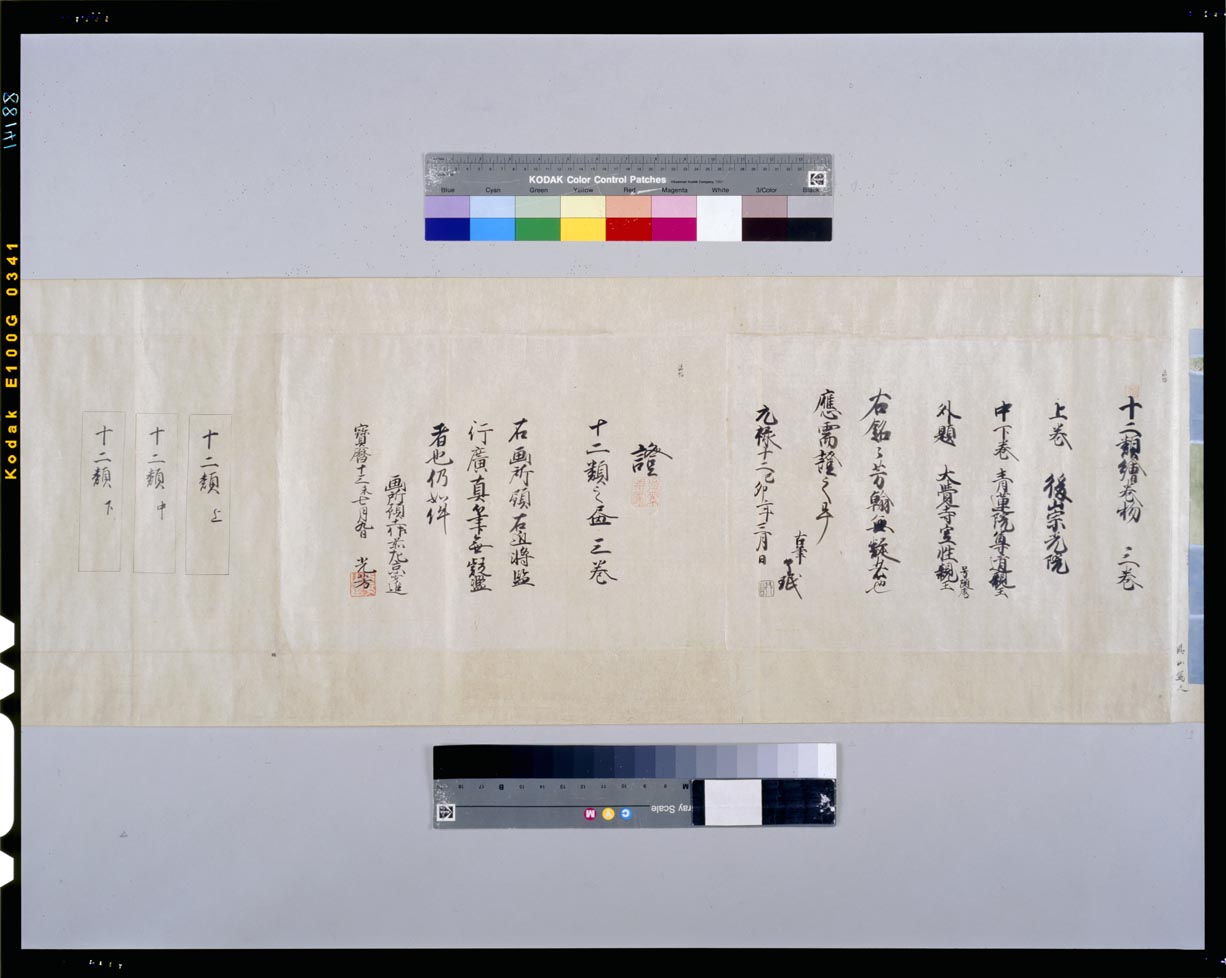 KODAK Color Control Patches
Blue Cyan Green Yellow Red Magenta White 3/Color Black
十二類繪巻物 三巻
上巻 後崇光院
中下巻 青蓮院尊道親王
外題 大覚寺空性親王
右銘々芳翰無疑者也
應需證之畢
古筆
了珉
元禄十二己卯年三月日
證
十二類之畫 三巻
右画所預右近将監
行廣真筆無疑鑑
者也仍如件
画所預土佐前左京少進
寶暦十三未七月
光芳
十二類 上
十二類 中
十二類 下
Kodak E100G 0341
88141
Gray Scale
C Y M